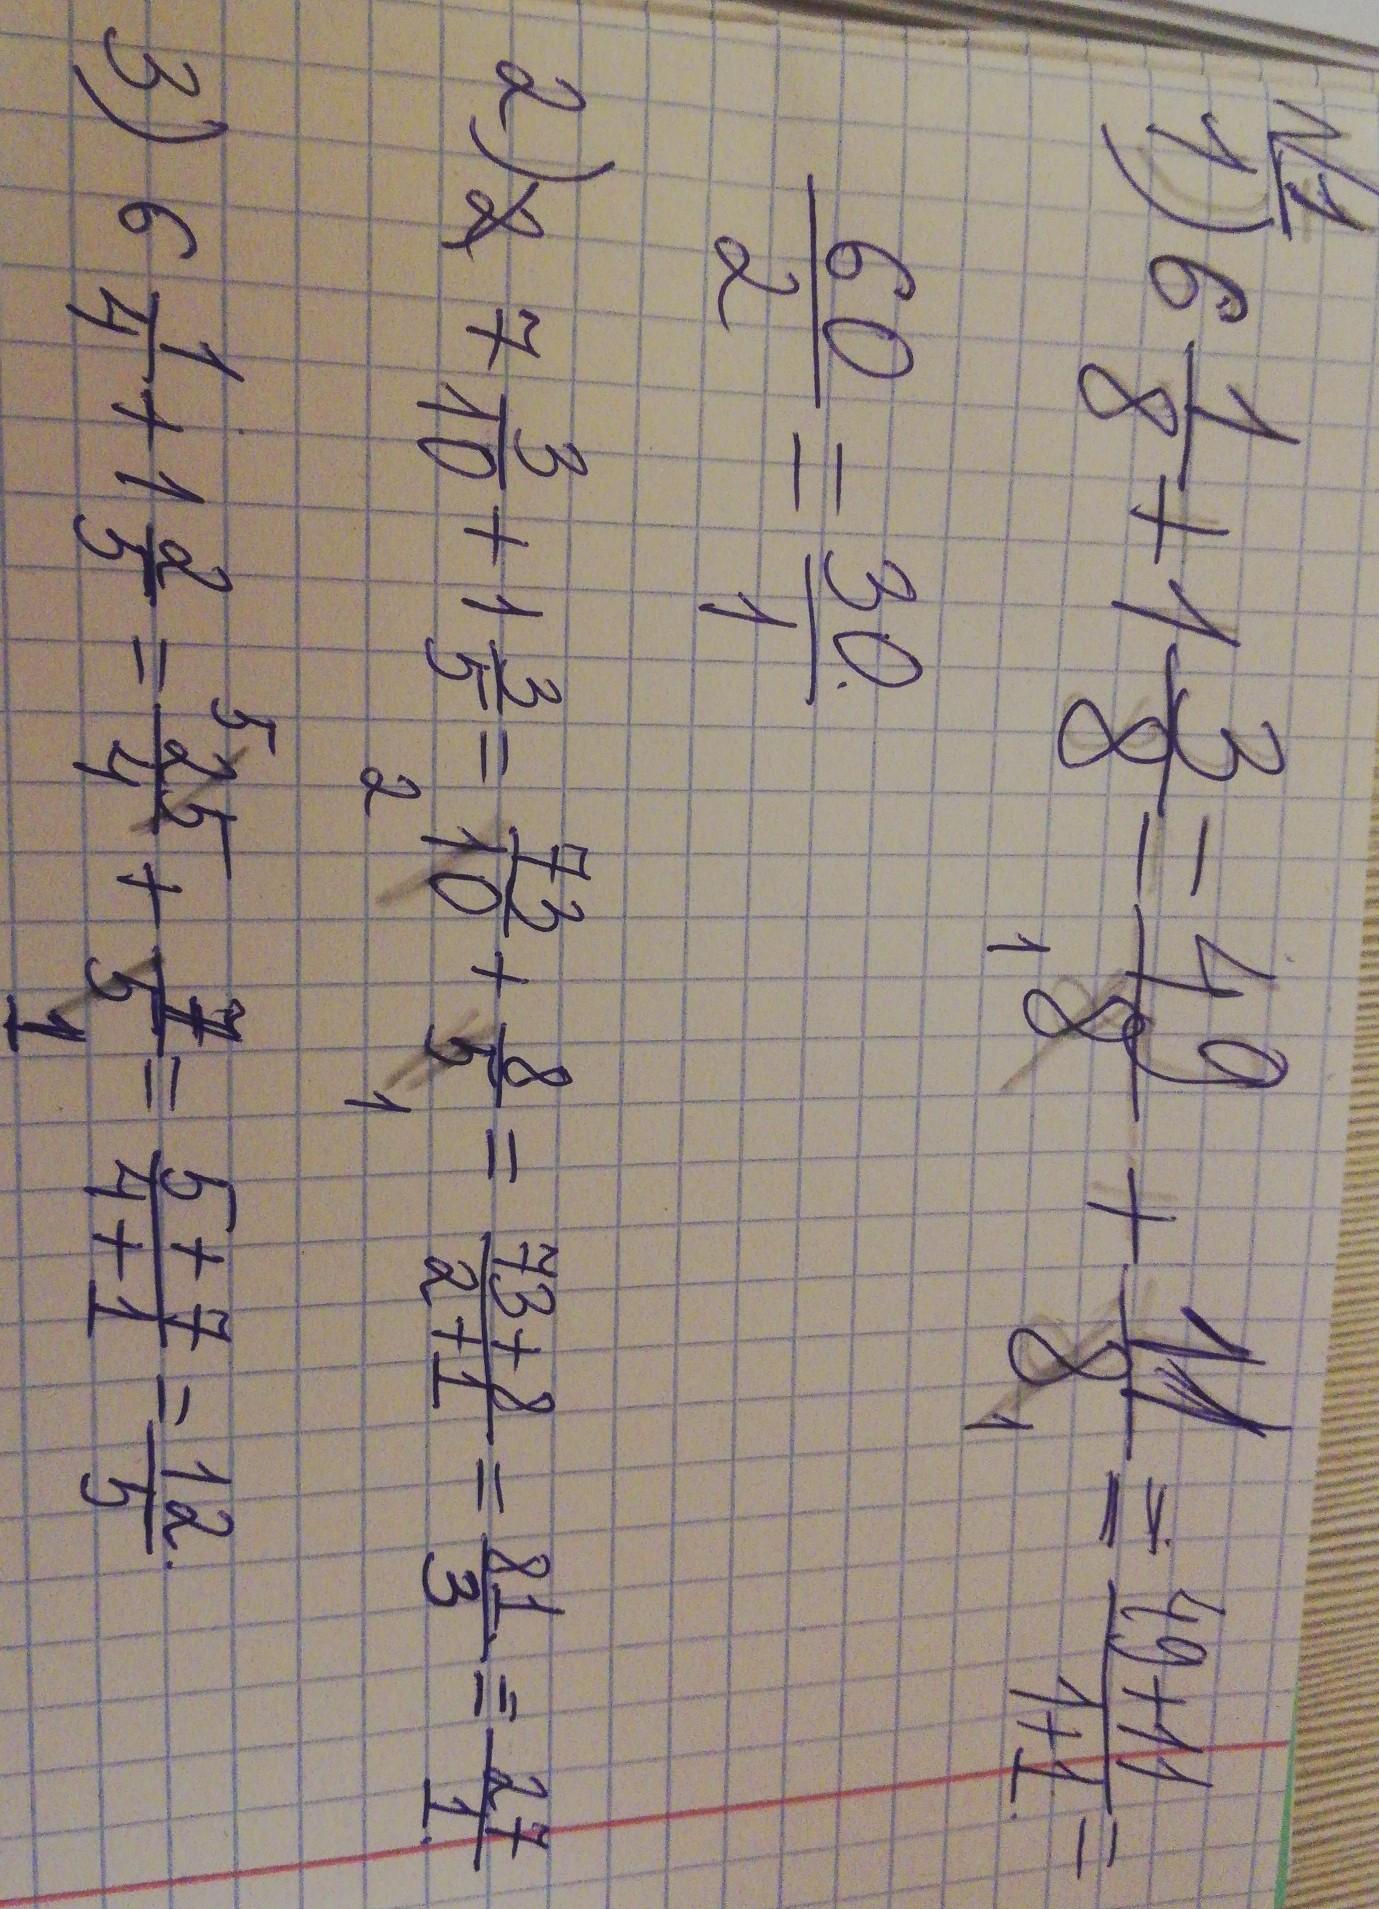 №1
1) 6 1/8 + 1 3/8 = 49/8 1 + 11/8 1 = 49+11/1+1 =
60/2 = 30/1.
2) 7 3/10 + 1 3/5 = 73/10 2 + 8/5 1 = 73+8/2+1 = 81/3 = 27/1.
3) 6 1/4 + 1 2/5 = 5 25/4 + 7/5 1 = 5+7/4+1 = 12/5.